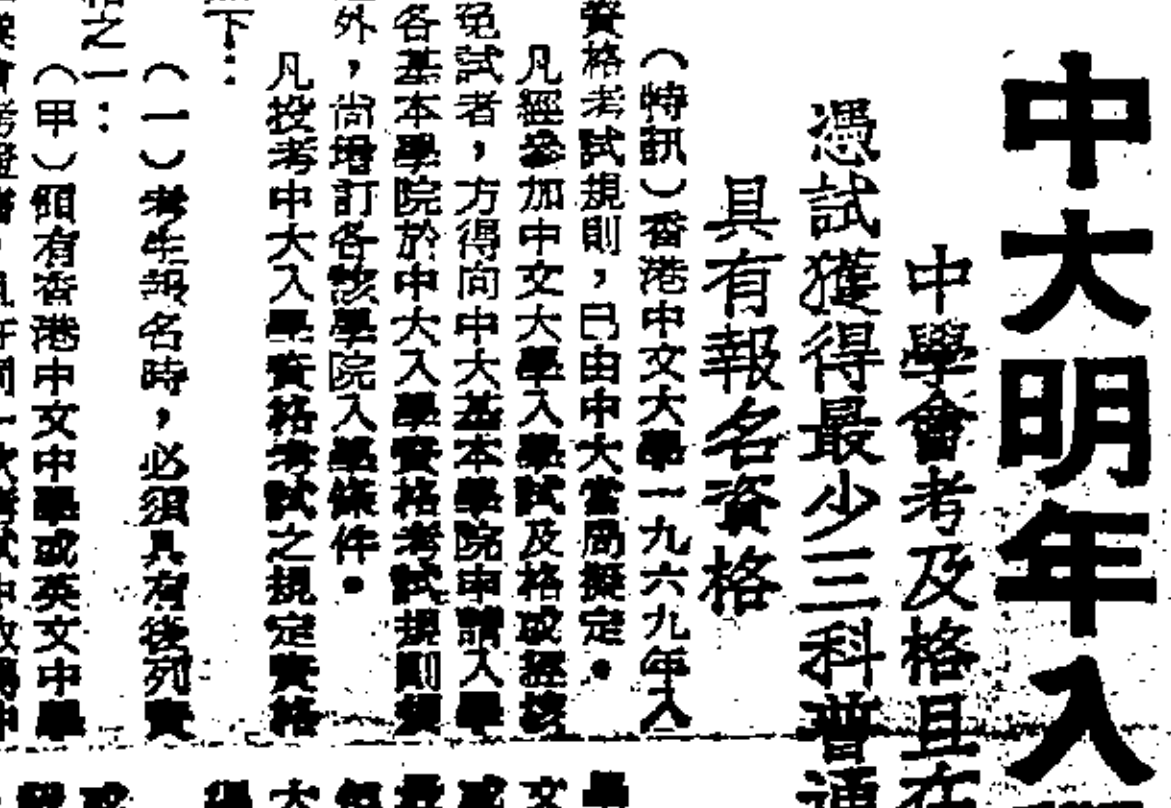 中大明年入
中學會考及格且在
憑試獲得最少三科普通
具有報名資格
（特訊）香港中文大學一九六九年入
資格考試規則，已由中大當局擬定。
凡經參加中文大學入學試及格或經核
免試者，方得向中大基本學院申請入學
各基本學院於中大入學資格考試規則規
外，尚增訂各該學院入學條件。
凡投考中大入學資格考試之規定資格
下：
（一）考生報名時，必須具有後列資
格之一：
（甲）領有香港中文中學或英文中學
會考證書，且在同一次考試中